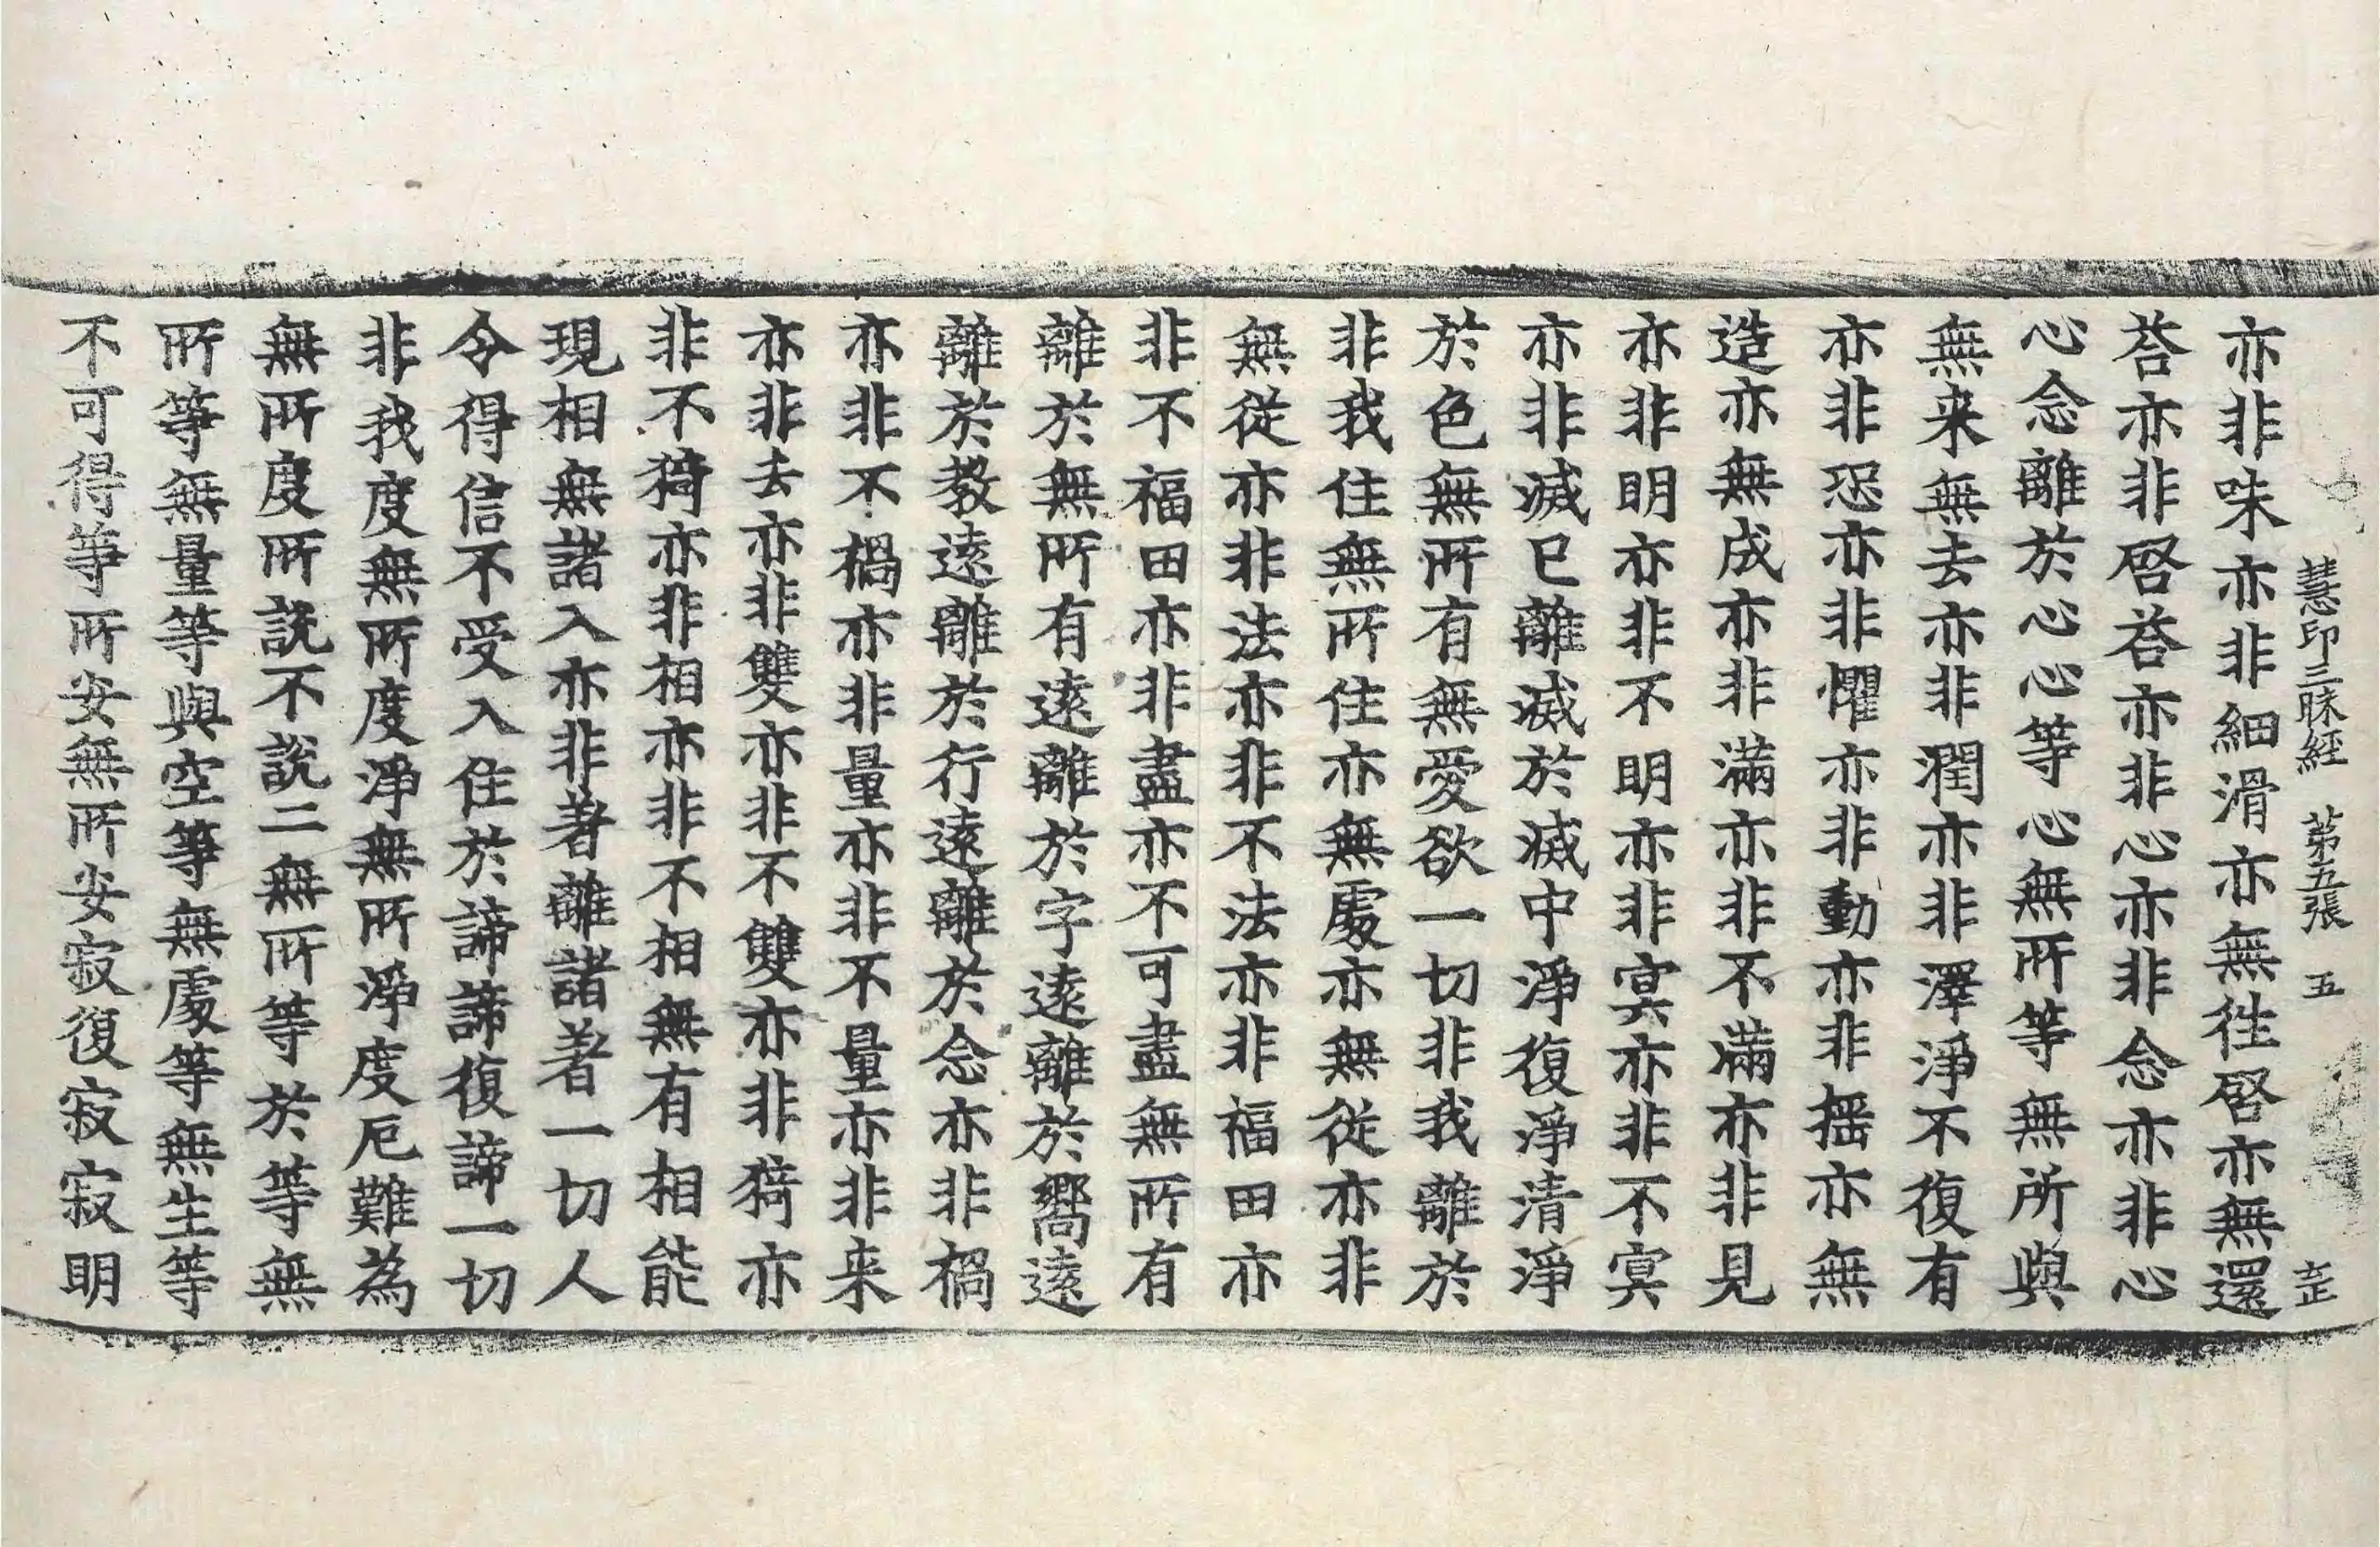 慧印三昧経 第五張 五
亦非味亦非細滑亦無徃啓亦無還
荅亦非啓荅亦非心亦非念亦非心
心念離於心心等心無所等無所與
無来無去亦非潤亦非澤淨不復有
亦非恐亦非懼亦非動亦非揺亦無
造亦無成亦非滿亦非不滿亦非見
亦非明亦非不明亦非冥亦非不冥
亦非滅已離滅於滅中淨復淨清淨
於色無所有無愛欲一切非我離於
非我住無所住亦無處亦無從亦非
無從亦非法亦非不法亦非福田亦
非不福田亦非盡亦不可盡無所有
離於無所有遠離於字遠離於嚮遠
離於教遠離於行遠離於念亦非禍
亦非不禍亦非量亦非不量亦非来
亦非去亦非雙亦非不雙亦非猗亦
非不猗亦非相亦非不相無有相能
現相無諸入亦非著離諸著一切人
令得信不受入住於諦諦復諦一切
非我度無所度淨無所淨度厄難為
無所度所說不說二無所等於等無
所等無量等與空等無處等無生等
不可得等所安無所安寂復寂寂明